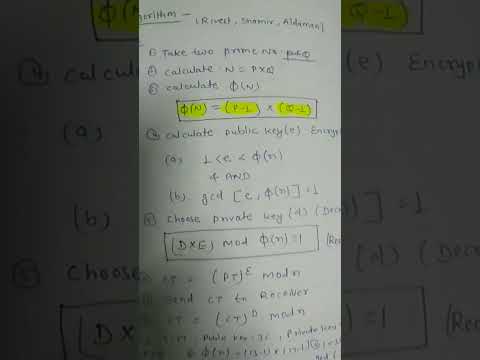 gorithm -
(Rivest, Shamir, Aldaman)
① Take two prime No. P&Q
② calculate N = P×Q
③ calculate ϕ(N)
ϕ(N) = (P-1) × (Q-1)
④ calculate public key(e) Encryp
(a) 1 < e < ϕ(n)
& AND
(b). gcd [e, ϕ(n)] = 1
⑤ choose private key (d) (Dec
(D×E) mod ϕ(n) = 1
CT = (PT)^E mod n
Send CT to Receiver
= (CT)^D mod n
④ calcu
(e) Encryp
(a)
(b)
] = 1
⑤ choos
(d) (
(D×
= 1